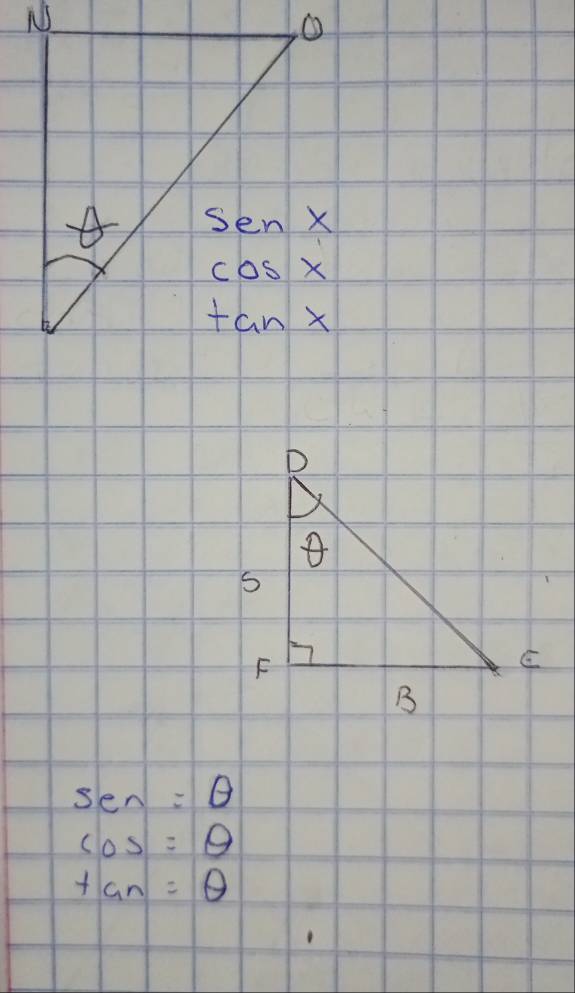 N O
θ
sen x
cos x
tan x
D
θ
S
F E
B
sen = θ
cos = θ
tan = θ